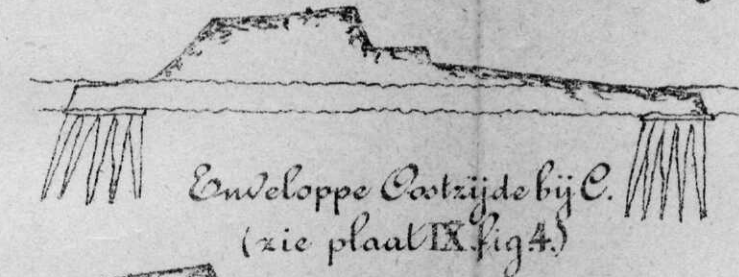 Enveloppe Oostzijde bij C.
(zie plaat IX. fig 4.)